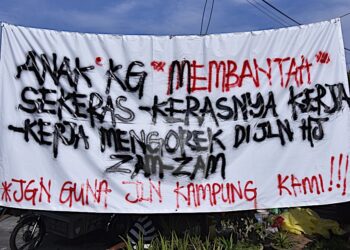 ANAK" KG "MEMBANTAH"
SEKERAS-KERASNYA KERJA
-KERJA MENGOREK DI JLN HJ
ZAM-ZAM
*JGN GUNA JLN KAMPUNG KAMI!!!